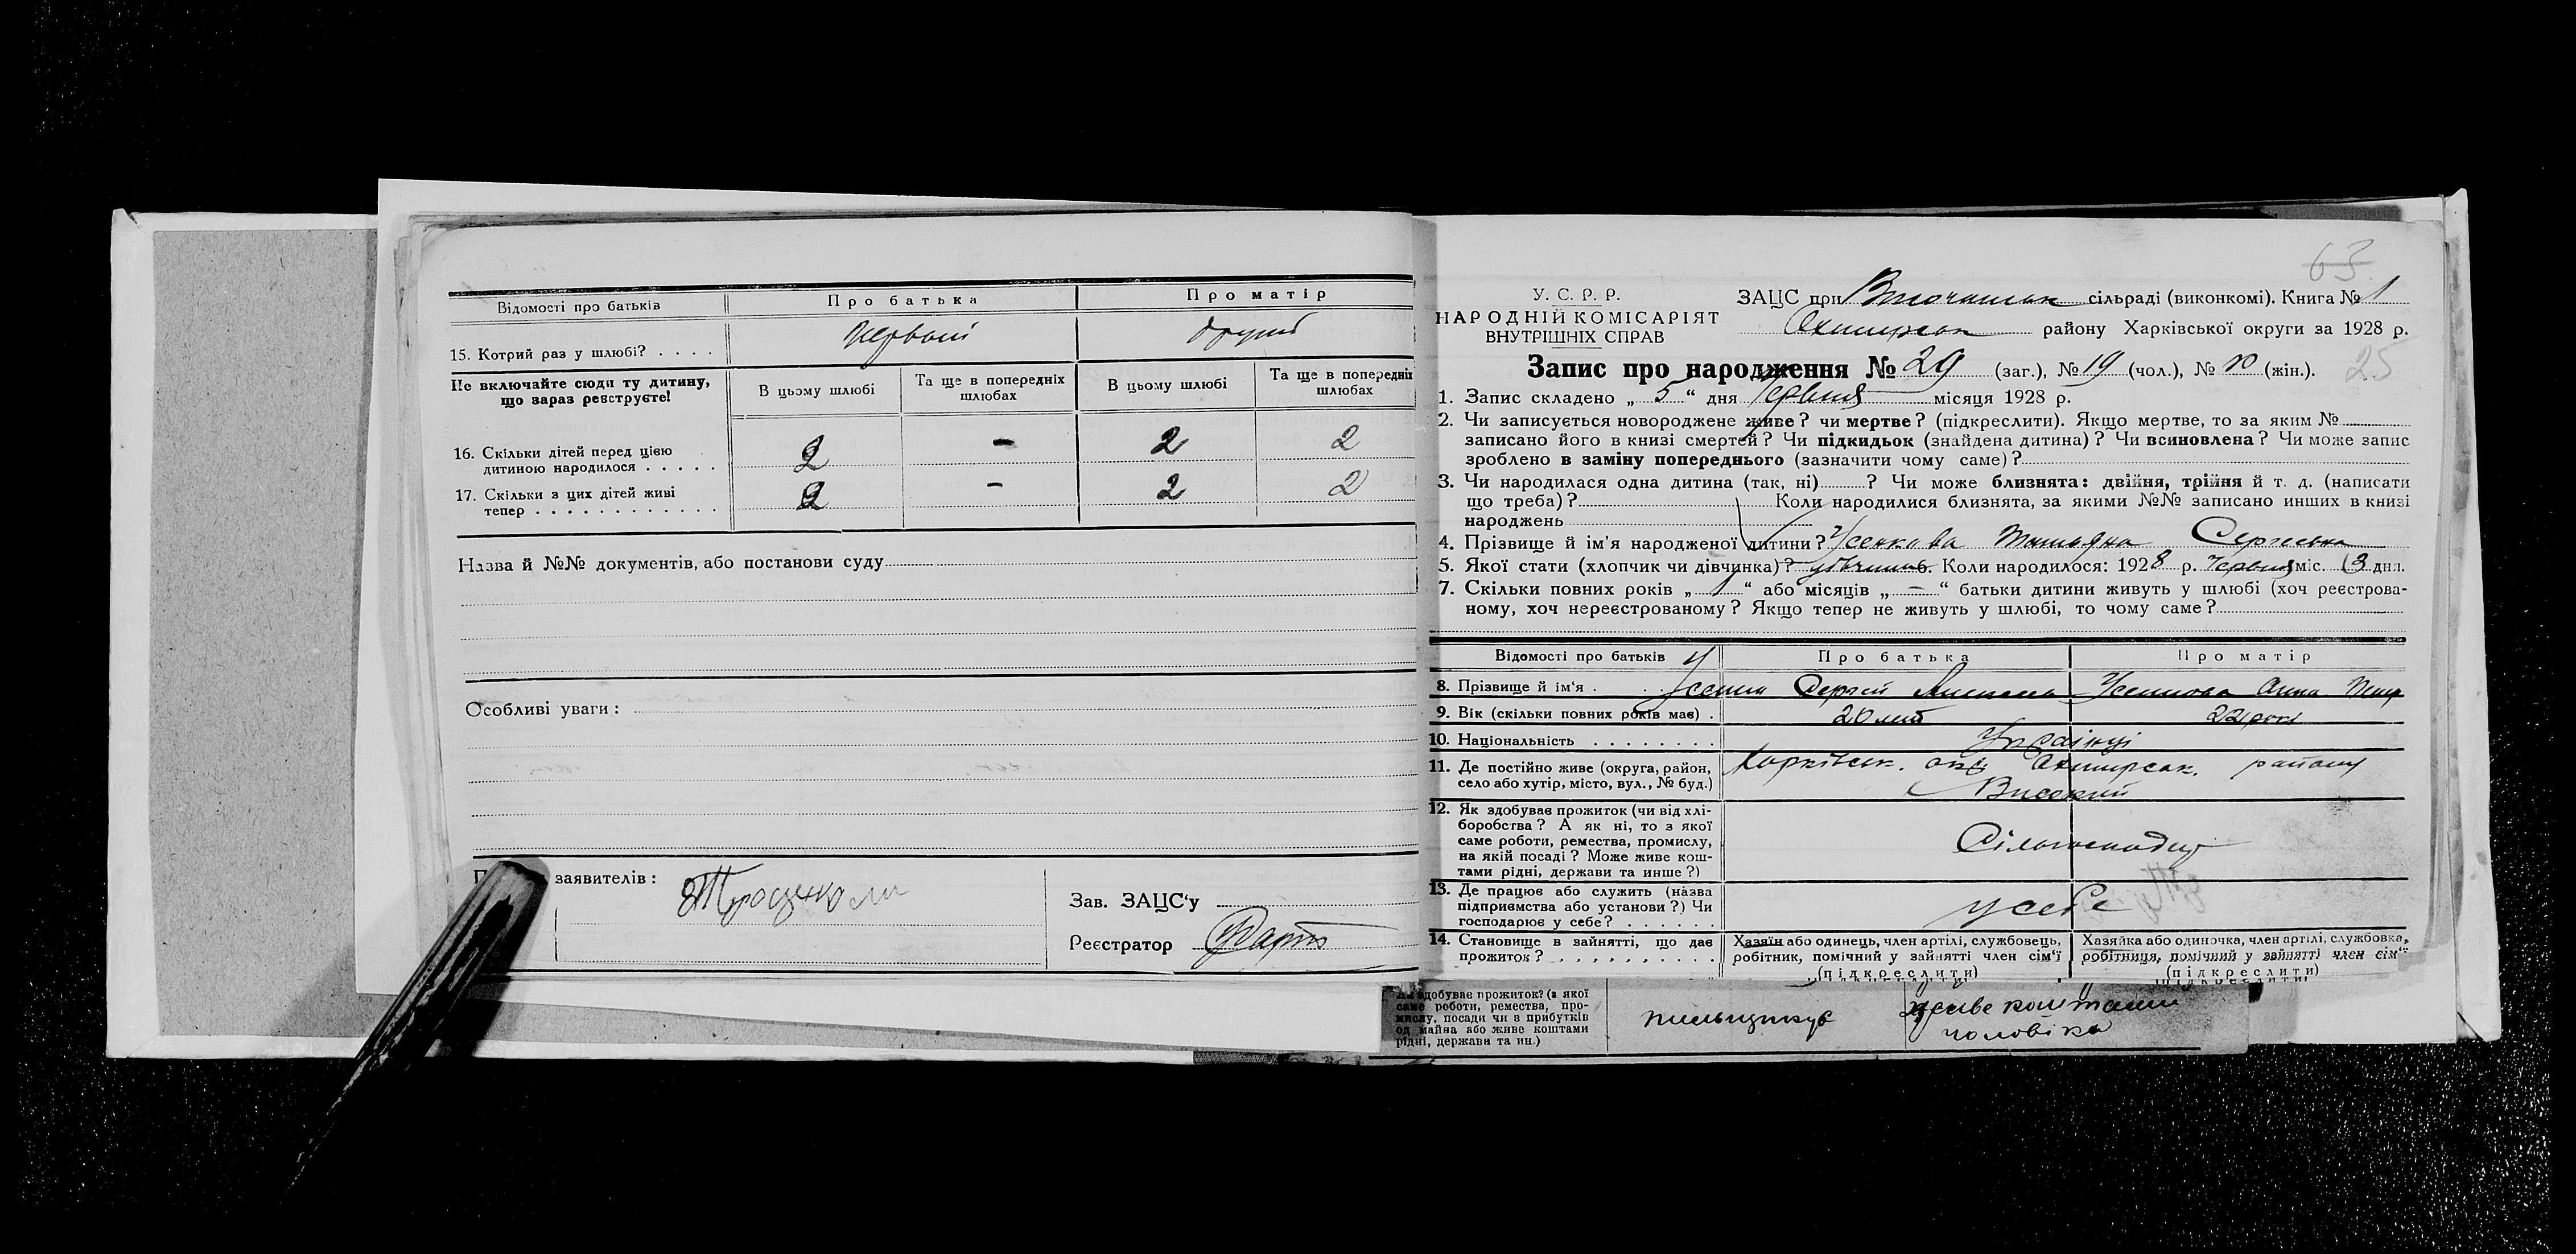 Відомості про батьків Про батька Про матір
15. Котрий раз у шлюбі? . . . . первый другий
Не включайте сюди ту дитину, що зараз реєструєте!
В цьому шлюбі Та ще в попередніх шлюбах В цьому шлюбі Та ще в попередніх шлюбах
16. Скільки дітей перед цією
дитиною народилося . . . . . 2 - 2 2
17. Скільки з цих дітей живі
тепер . . . . . . . . . . . . 2 - 2 2
Назва й №№ документів, або постанови суду
Особливі уваги :
заявителів :
Зав. ЗАЦС'у
Реєстратор
63
У. С. Р. Р.
НАРОДНІЙ КОМІСАРІЯТ
ВНУТРІШНІХ СПРАВ
ЗАЦС при сільраді (виконкомі). Книга № 1
району Харківської округи за 1928 р.
25
Запис про народження № 29 (заг.), № 19 (чол.), № 10 (жін.).
1. Запис складено „ 5 “ дня червня місяця 1928 р.
2. Чи записується новороджене живе? чи мертве? (підкреслити). Якщо мертве, то за яким №
записано його в книзі смертей? Чи підкидьок (знайдена дитина)? Чи всиновлена? Чи може запис
зроблено в заміну попереднього (зазначити чому саме)?
3. Чи народилася одна дитина (так, ні) ? Чи може близнята: двійня, трійня й т. д. (написати
що треба)? Коли народилися близнята, за якими №№ записано инших в книзі
народжень
4. Прізвище й ім'я народженої дитини? Сергієвна
5. Якої статі (хлопчик чи дівчинка)? Коли народилося: 1928 р. червня міс. 3 дня.
7. Скільки повних років „ “ або місяців „ - “ батьки дитини живуть у шлюбі (хоч реєстрова-
ному, хоч нереєстрованому? Якщо тепер не живуть у шлюбі, то чому саме?
Відомості про батьків Про батька Про матір
8. Прізвище й ім'я . Сергій Анна
9. Вік (скільки повних років має) . 20 лет 22 роки
10. Національність . . . . . . . . Українці
11. Де постійно живе (округа, район,
село або хутір, місто, вул., № буд.)
Харківськ. окр. району
Високий
12. Як здобуває прожиток (чи від хлі-
боробства? А як ні, то з якої
саме роботи, ремества, промислу,
на якій посаді? Може живе кош-
тами рідні, держави та инше?)
13. Де працює або служить (назва
підприємства або установи?) Чи
господарює у себе? . . . . . . у себе
14. Становище в зайнятті, що дає
прожиток? . . . . . . . . . .
Хазяїн або одинець, член артілі, службовець,
робітник, помічний у зайнятті член сім'ї
(підкреслити)
Хазяйка або одиночка, член артілі, службовка,
робітниця, помічний у зайнятті член сім'ї
(підкреслити)
здобуває прожиток? (з якої
саме роботи, ремества, про-
мислу, посади чи з прибутків
од майна або живе коштами
рідні, держави та ин.)
живе коштами
чоловіка